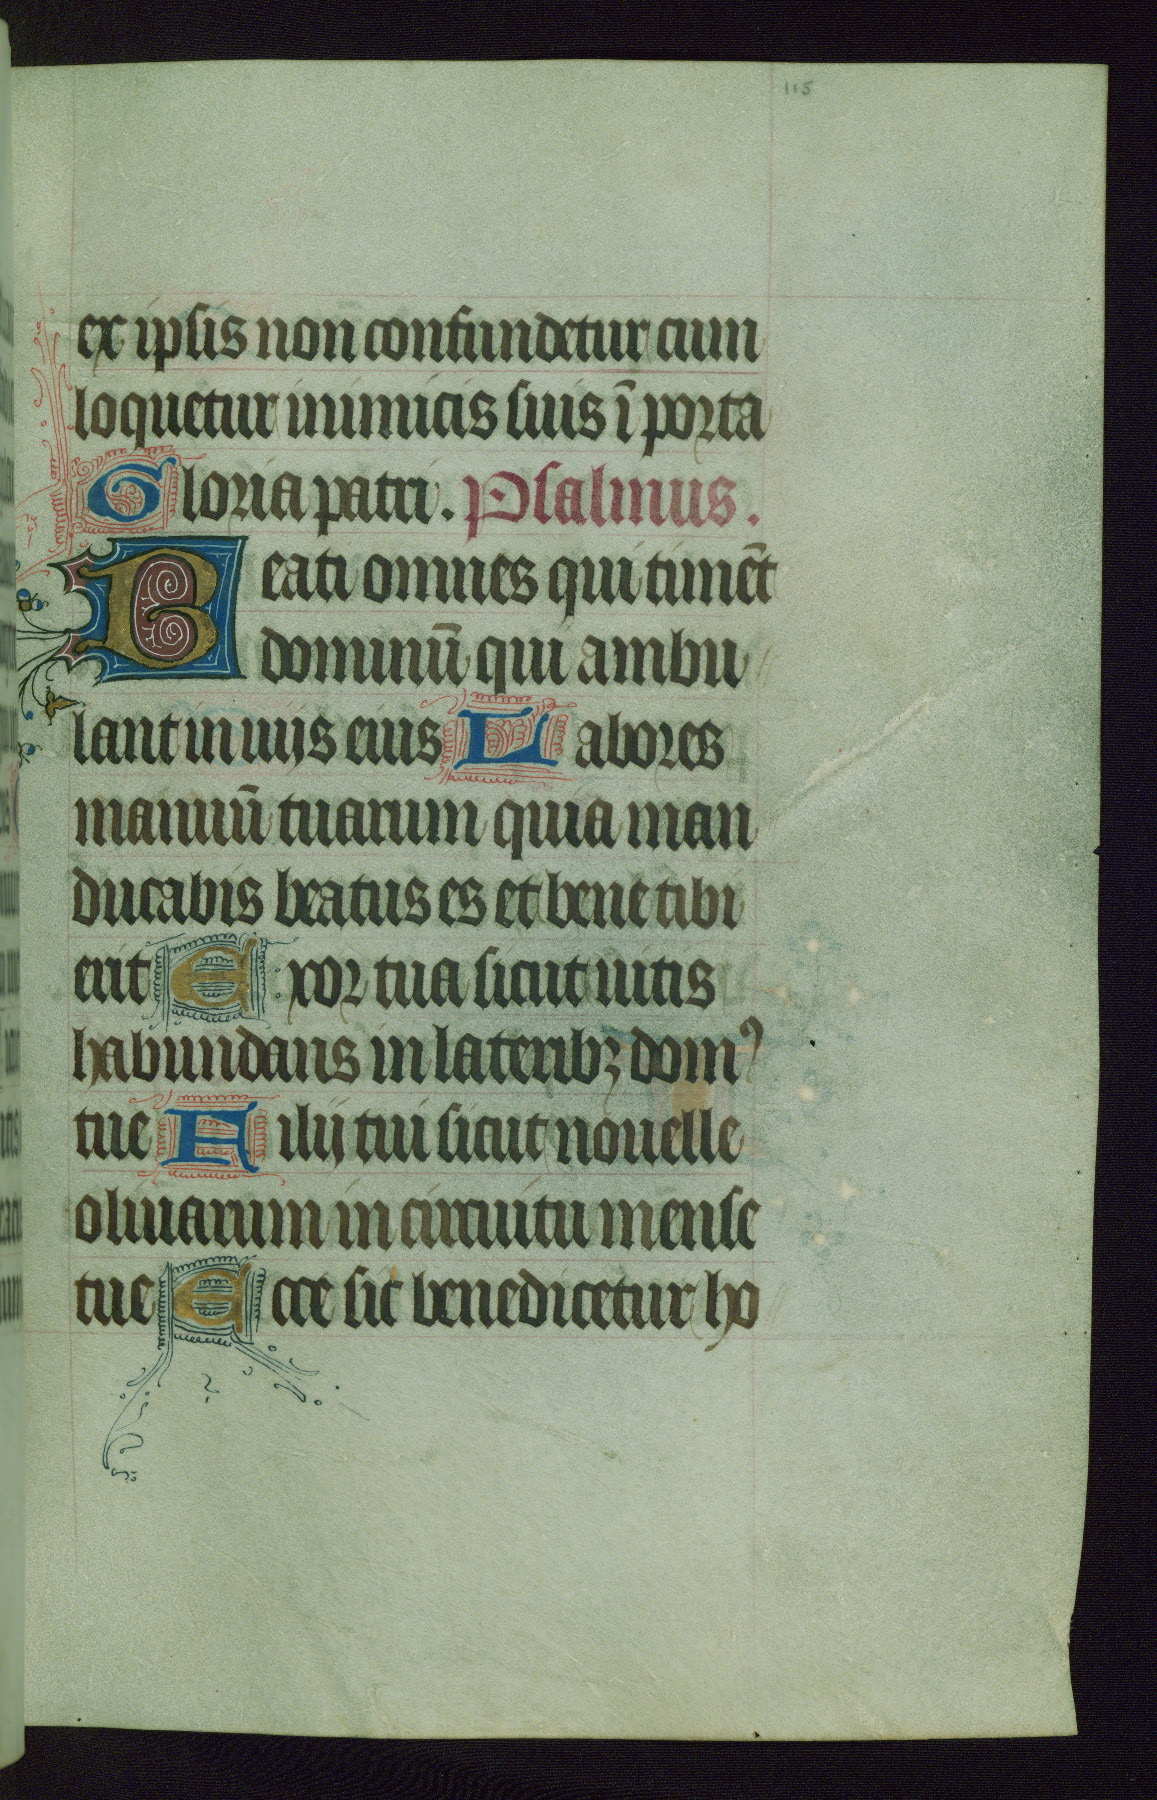 115
ex ipsis non confundetur cum
loquetur inimicis suis ī porta
Gloria patri. Psalmus.
Beati omnes qui timēt
dominū qui ambu
lant in uijs eius Labores
manuū tuarum quia man
ducabis beatus es et bene tibi
erit Exor tua sicut uitis
habundans in lateribꝫ domꝰ
tue Filij tui sicut nouelle
oliuarum in circuitu mense
tue Ecce sic benedicetur ho